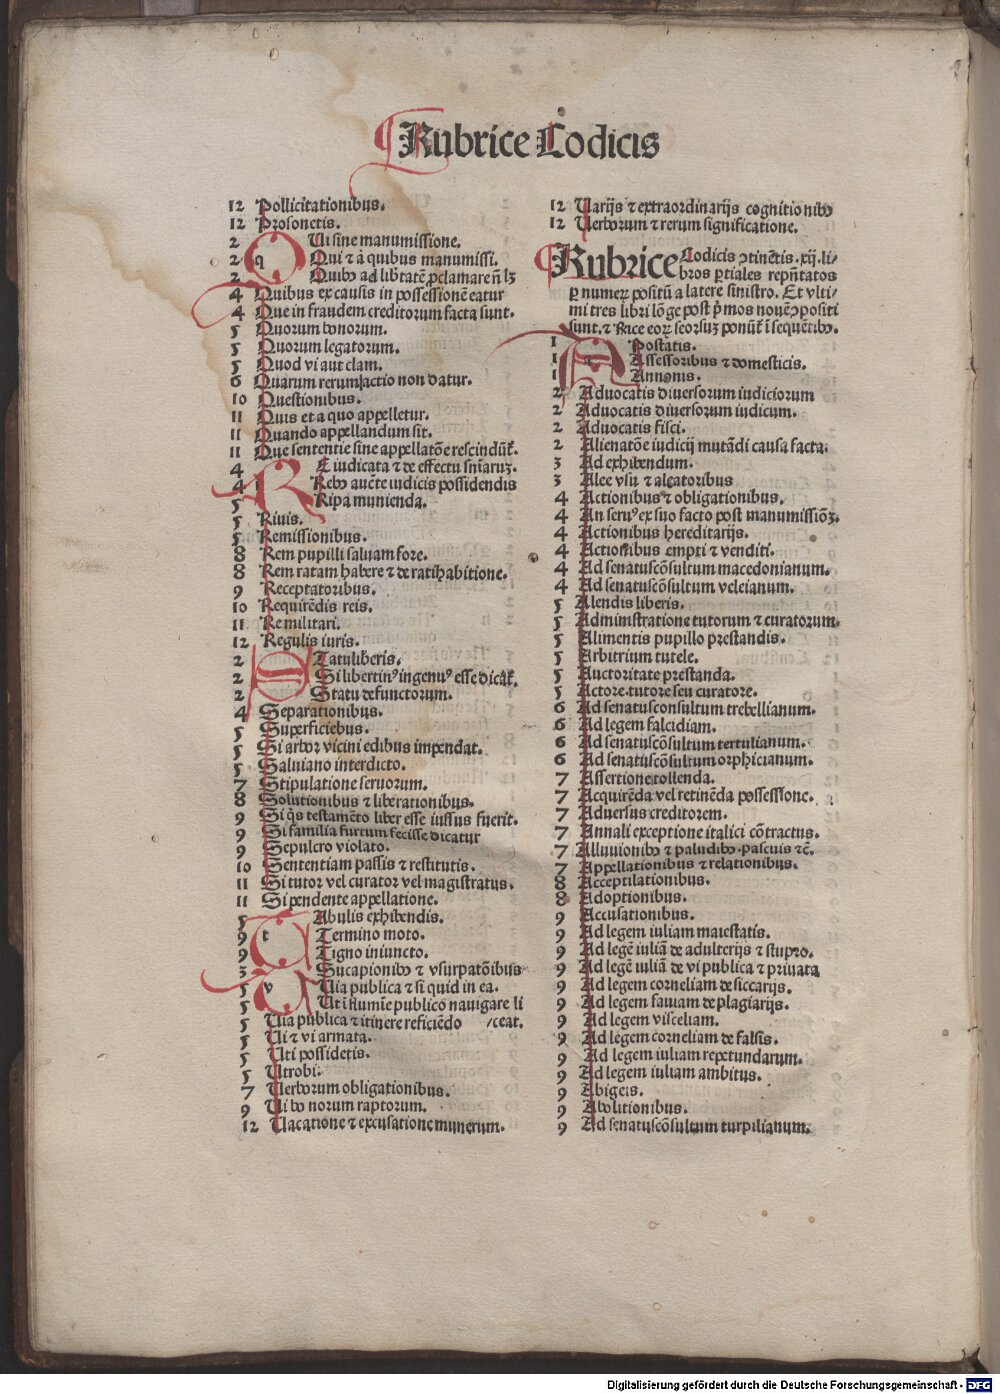 Rubrice Codicis
12 Pollicitationibus.
12 Prosonetis.
2 QUi sine manumissione.
2 Qui ⁊ à quibus manumissi.
2 Quibꝰ ad libtatē ꝓclamare ñ lꝫ
4 Quibus ex causis in possessionē eatur
4 Que in fraudem creditorum facta sunt.
5 Quorum bonorum.
5 Quorum legatorum.
5 Quod vi aut clam.
6 Quarum rerum actio non datur.
10 Questionibus.
11 Quis et a quo appelletur.
11 Quando appellandum sit.
11 Que sententie sine appellatōe rescindūt.
4 RE iudicata ⁊ de effectu sniaruꝫ.
4 Rebꝰ aucte iudicis possidendis
5 Ripa munienda.
5 Riuis.
5 Remissionibus.
8 Rem pupilli saluam fore.
8 Rem ratam habere ⁊ de ratihabitione.
9 Receptatoribus.
10 Requirēdis reis.
11 Re militari.
12 Regulis iuris.
2 STatuliberis.
2 Si libertinꝰ ingenuꝰ esse dicat.
2 Statu defunctorum.
4 Separationibus.
5 Superficiebus.
5 Si arbor vicini edibus impendat.
5 Saluiano interdicto.
7 Stipulatione seruorum.
8 Solutionibus ⁊ liberationibus.
9 Si qs testamēto liber esse iussus fuerit.
9 Si familia furtum fecisse dicatur
9 Sepulcro violato.
10 Sententiam passis ⁊ restitutis.
11 Si tutor vel curator vel magistratus.
11 Si pendente appellatione.
5 TAbulis exhibendis.
9 Termino moto.
9 Tigno iniuncto.
3 VSucapionibꝰ ⁊ vsurpatōibus
5 Via publica ⁊ si quid in ea.
5 Ut ī flumīe publico nauigare li
5 Via publica ⁊ itinere reficiēdo /ceat.
5 Ui ⁊ vi armata.
5 Uti possidetis.
5 Utrobi.
7 Uerborum obligationibus.
9 Ui bonorum raptorum.
12 Uacatione ⁊ excusatione munerum.
12 Uarijs ⁊ extraordinarijs cognitionibꝰ
12 Uerborum ⁊ rerum significatione.
Rubrice Codicis ↄtinētis .xij. li-
bros ꝑtiales repñtatos
ꝑ numeꝝ positū a latere sinistro. Et vlti-
mi tres libri lōge post pmos nouē ↄpositi
sunt. ⁊ Rūce eoꝝ seorsuꝫ ponūt ī sequētibꝰ.
1 APostatis.
1 Assessoribus ⁊ domesticis.
1 Annonis.
2 Aduocatis diuersorum iudiciorum
2 Aduocatis diuersorum iudicum.
2 Aduocatis fisci.
2 Alienatōe iudicij mutādi causa facta.
3 Ad exhibendum.
3 Alee vsu ⁊ aleatoribus
4 Actionibus ⁊ obligationibus.
4 An seruꝰ ex suo facto post manumissiōꝫ.
4 Actionibus hereditarijs.
4 Actionibus empti ⁊ venditi.
4 Ad senatuscōsultum macedonianum.
4 Ad senatuscōsultum veleianum.
5 Alendis liberis.
5 Administratione tutorum ⁊ curatorum.
5 Alimentis pupillo prestandis.
5 Arbitrium tutele.
5 Auctoritate prestanda.
5 Actore. tutore seu curatore.
6 Ad senatusconsultum trebellianum.
6 Ad legem falcidiam.
6 Ad senatuscōsultum tertulianum.
6 Ad senatuscōsultum orphicianum.
7 Assertione tollenda.
7 Acquirēda vel retinēda possessione.
7 Aduersus creditorem.
7 Annali exceptione italici cōtractus.
7 Alluuionibꝰ ⁊ paludibꝰ. pascuis ⁊c̄.
7 Appellationibus ⁊ relationibus.
8 Acceptilationibus.
8 Adoptionibus.
9 Accusationibus.
9 Ad legem iuliam maiestatis.
9 Ad legē iuliā de adulterijs ⁊ stupro.
9 Ad legē iuliā de vi publica ⁊ priuata
9 Ad legem corneliam de siccarijs.
9 Ad legem fauiam de plagiarijs.
9 Ad legem visceliam.
9 Ad legem corneliam de falsis.
9 Ad legem iuliam repetundarum.
9 Ad legem iuliam ambitus.
9 Abigeis.
9 Abolitionibus.
9 Ad senatuscōsultum turpilianum.
Digitalisierung gefördert durch die Deutsche Forschungsgemeinschaft - DFG